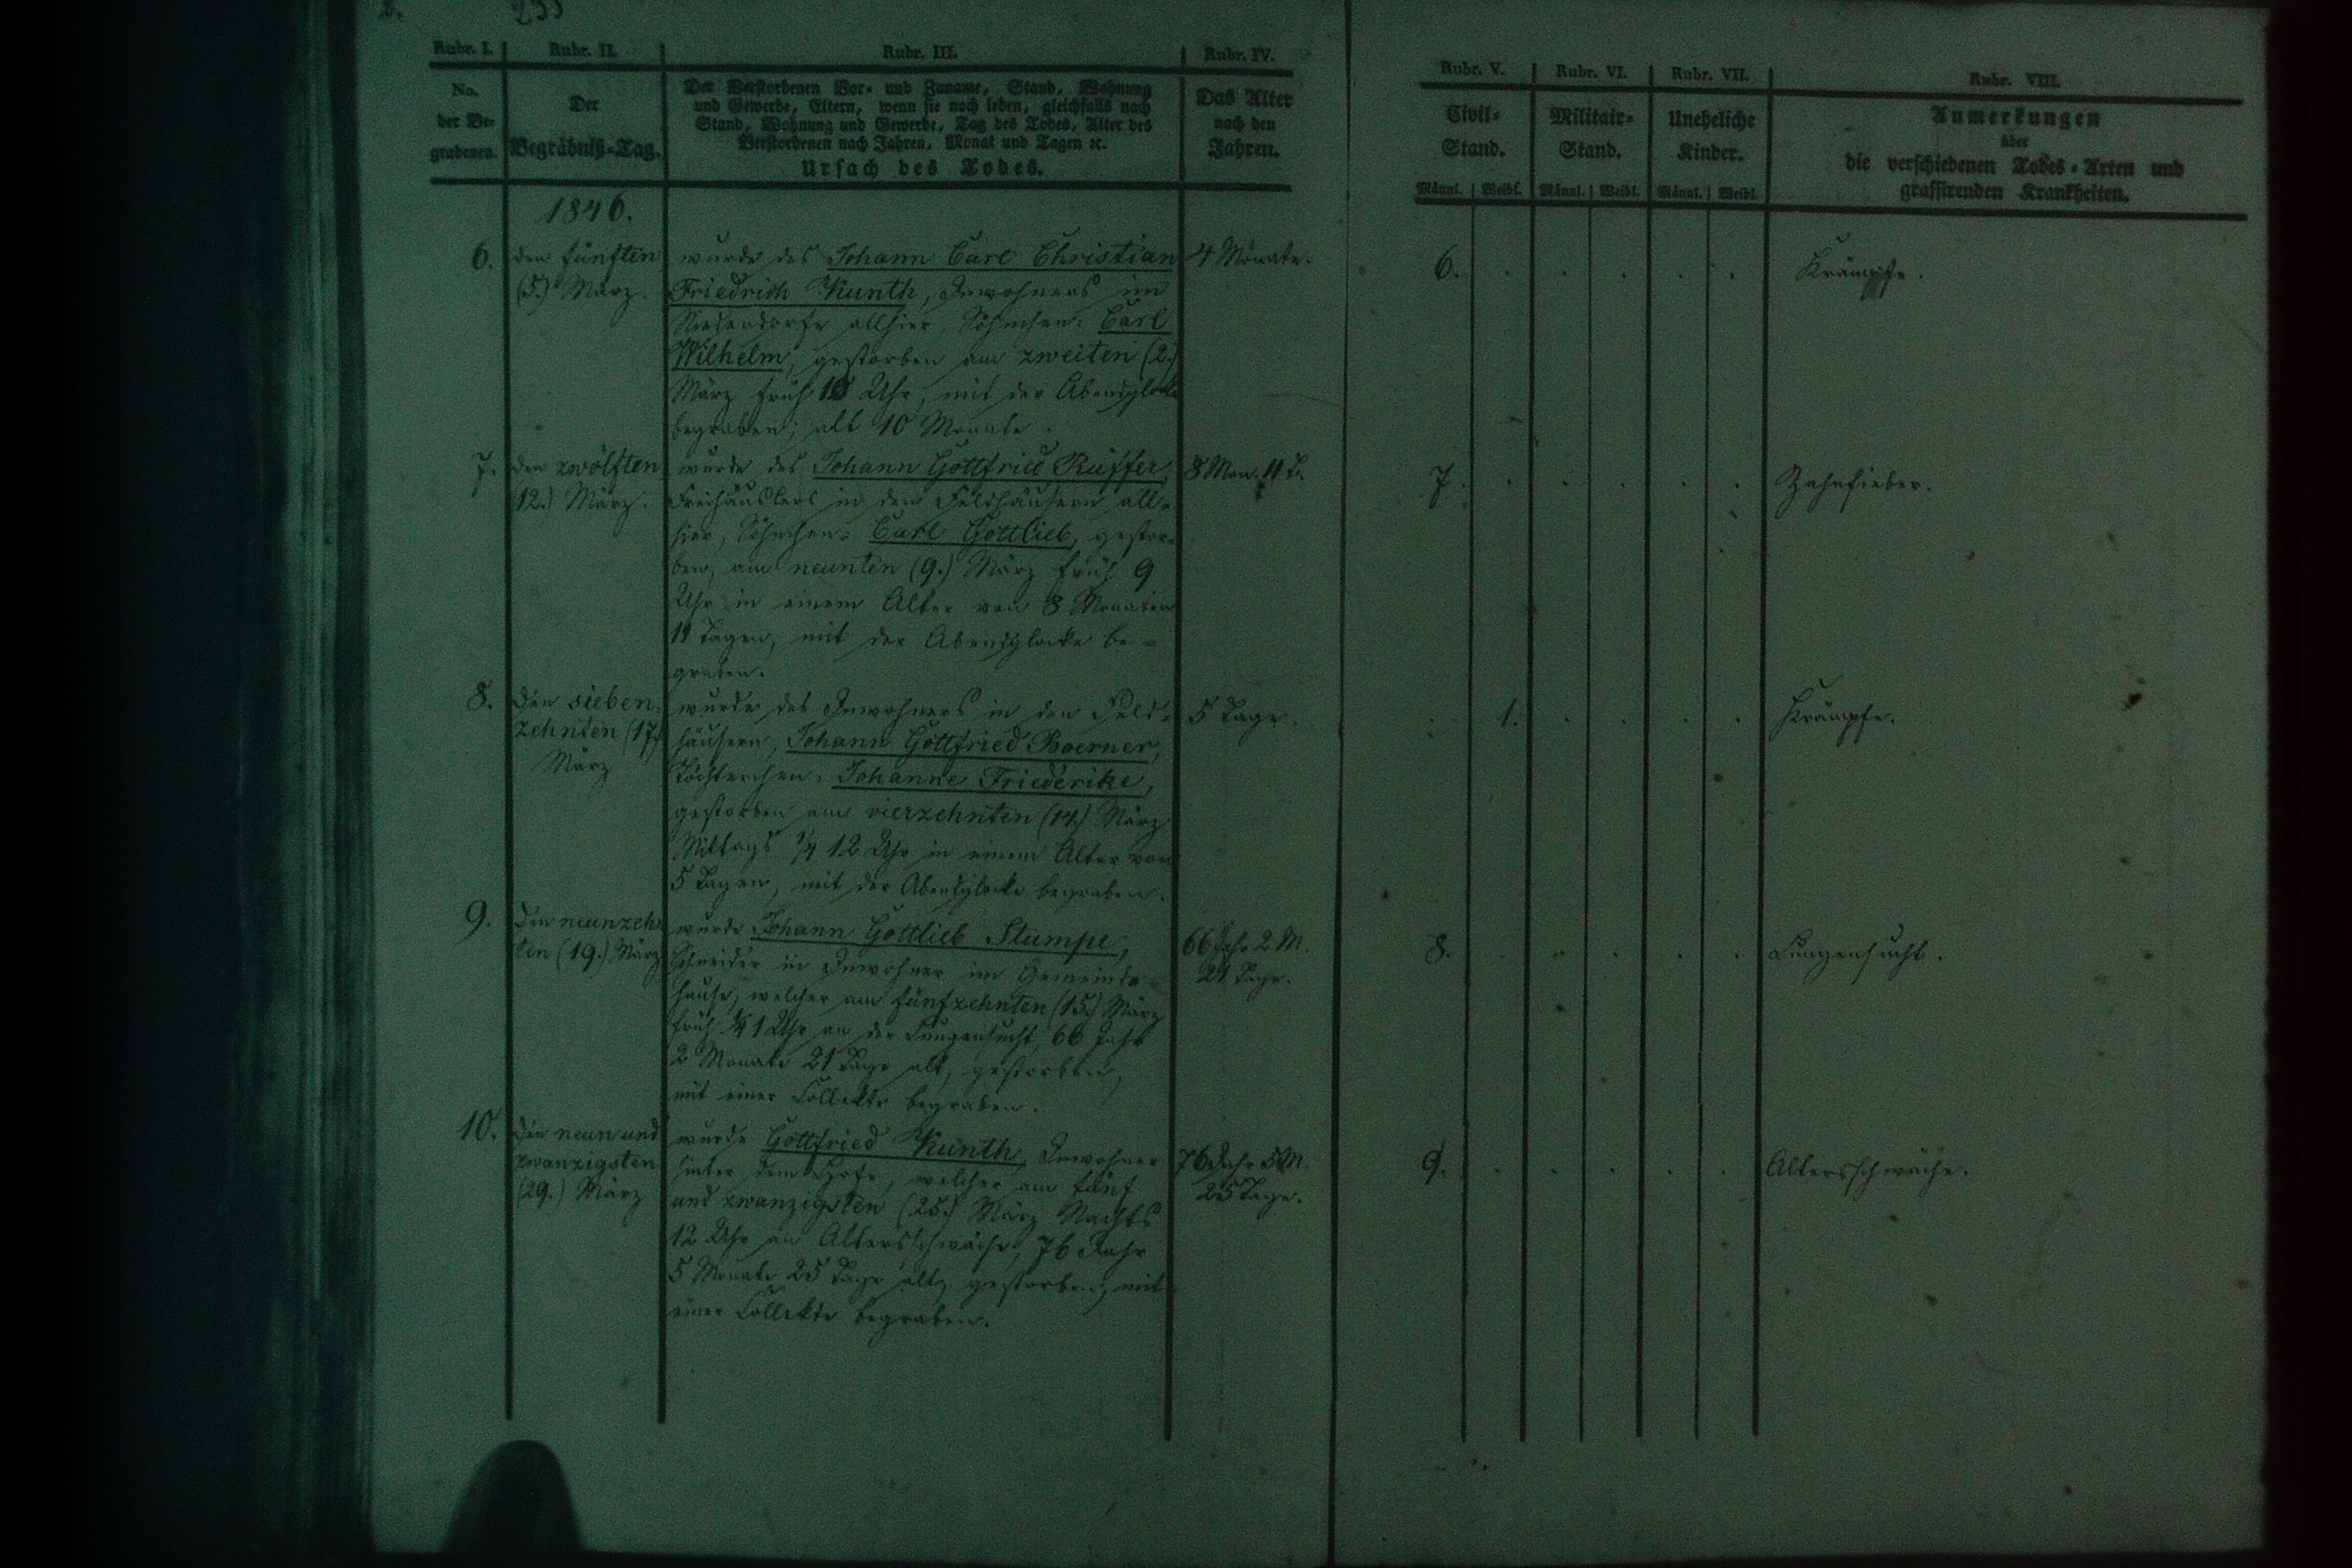 2.
233
Rubr. I. Rubr. II. Rubr. III. Rubr. IV. Rubr. V. Rubr. VI. Rubr. VII. Rubr. VIII.
No.
der Be-
grabenen.
Der
Begräbniß-Tag.
Der Verstorbenen Vor- und Zuname, Stand, Wohnung
und Gewerbe, Eltern, wenn sie noch leben, gleichfalls nach
Stand, Wohnung und Gewerbe, Tag des Todes, Alter des
Verstorbenen nach Jahren, Monat und Tagen ꝛc.
Ursach des Todes.
Das Alter
nach den
Jahren.
Civil-
Stand.
Männl. Weibl.
Militair-
Stand.
Männl. Weibl.
Uneheliche
Kinder.
Männl. Weibl.
Anmerkungen
über
die verschiedenen Todes-Arten und
grassirenden Krankheiten.
1846.
6.
den fünften
(5.) März.
wurde des Johann Carl Christian
Friedrich Kunth, Inwohners im
Niederdorfe allhier, Söhnchen: Carl
Wilhelm, gestorben am zweiten (2.)
März früh Uhr, mit der Abendglocke
begraben; alt 10 Monate.
4 Monate.
6.
Krämpfe.
7.
den zwölften
(12.) März.
wurde des Johann Gottfried Rüffer,
Freihäuslers in den Feldhäusern all-
hier, Söhnchen: Carl Gottlieb, gestor-
ben am neunten (9.) März früh 9
Uhr in einem Alter von 8 Monaten
11 Tagen, mit der Abendglocke be-
graben.
8 Mon. 11 T.
7.
Zahnfieber.
8.
den sieben-
zehnten (17.)
März
wurde des Inwohners in den Feld-
häusern, Johann Gottfried Boerner,
Töchterchen: Johanne Friederike,
gestorben am vierzehnten (14.) März
Mittags 1/4 12 Uhr in einem Alter von
5 Tagen, mit der Abendglocke begraben.
5 Tage.
1.
Krämpfe.
9.
den neunzehn
ten (19.) März
wurde Johann Gottlieb Stumpe,
Schneider in Inwohner im Gemeinde-
hause, welcher am fünfzehnten (15.) März
früh 1 Uhr an der Lungensucht, 66 Jahr
2 Monate 21 Tage alt, gestorben,
mit einer Collekte begraben.
66 Jahr 2 M.
21 Tage.
8.
Lungensucht.
10.
den neun und
zwanzigsten
(29.) März
wurde Gottfried Kunth, Inwohner
hinter dem Hofe, welcher am fünf
und zwanzigsten (25.) März Nachts
12 Uhr an Altersschwäche, 76 Jahr
5 Monate 25 Tage alt, gestorben, mit
einer Collekte begraben.
76 Jahr 5 M.
25 Tage.
9.
Altersschwäche.